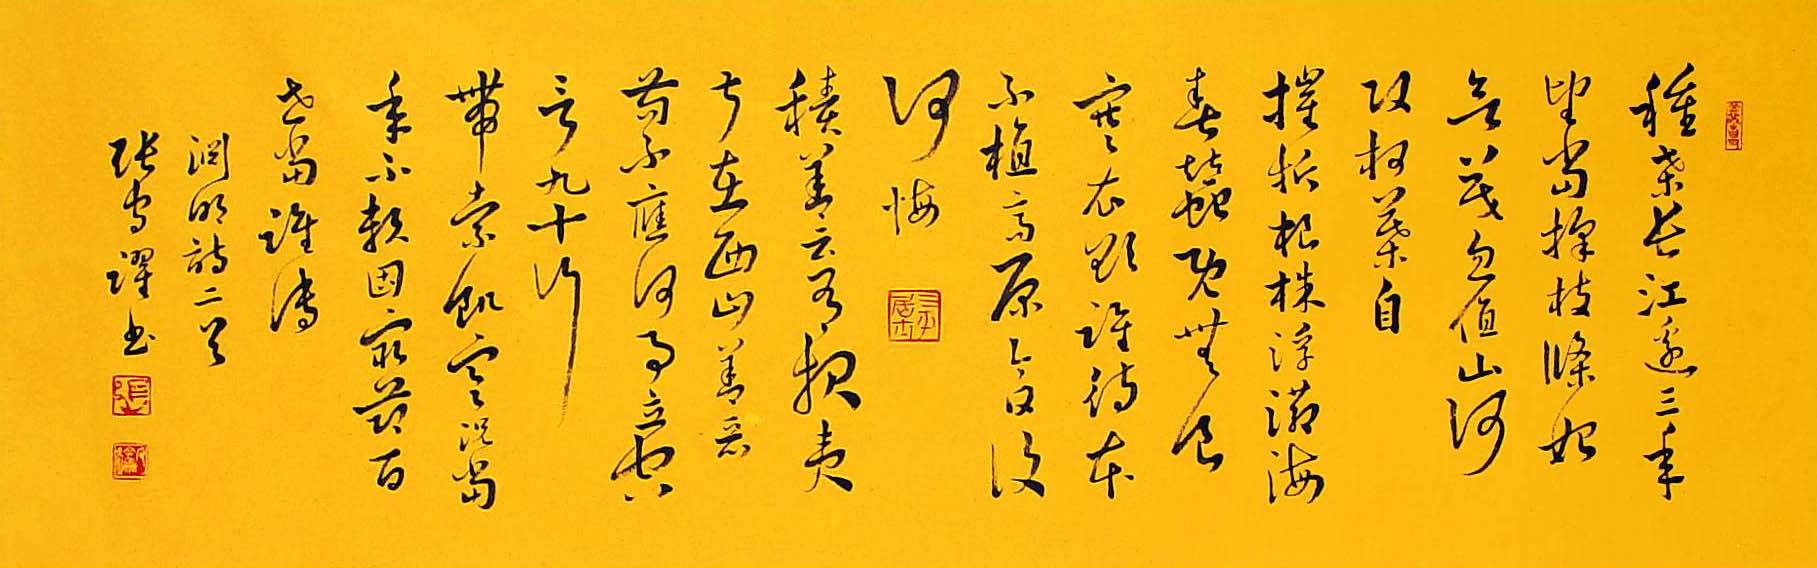 種桑長江邊三年
望當採枝條始
欲茂忽值山河
改柯葉自
摧折根株浮滄海
春蠶既無食
寒衣欲誰待本
不植高原今日復
何悔
積善云有報夷
叔在西山善惡
苟不應何事立空
言九十行
帶索飢寒況當
年不賴固窮節百
世當誰傳
淵明詩二首
張躍書
張